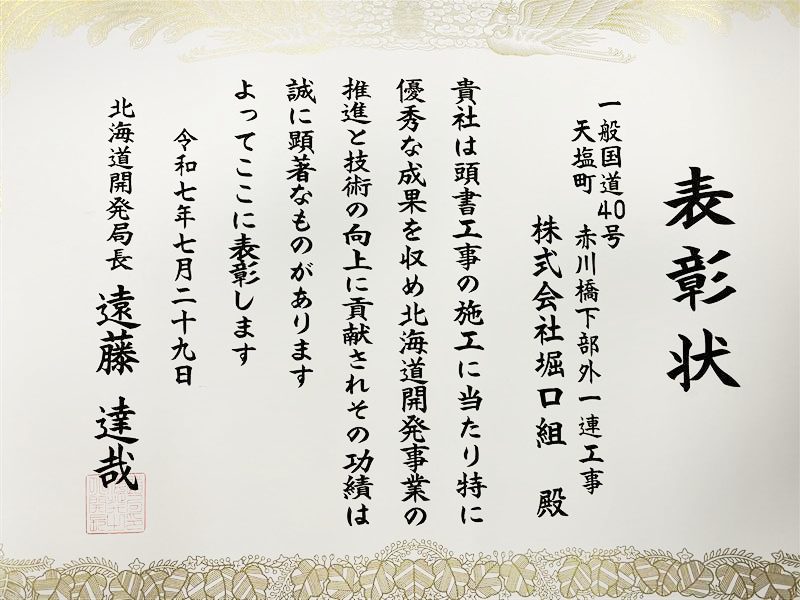 表彰状
一般国道40号
天塩町 赤川橋下部外一連工事
株式会社堀口組 殿
貴社は頭書工事の施工に当たり特に
優秀な成果を収め北海道開発事業の
推進と技術の向上に貢献されその功績は
誠に顕著なものがあります
よってここに表彰します
令和七年七月二十九日
北海道開発局長 遠藤 達哉